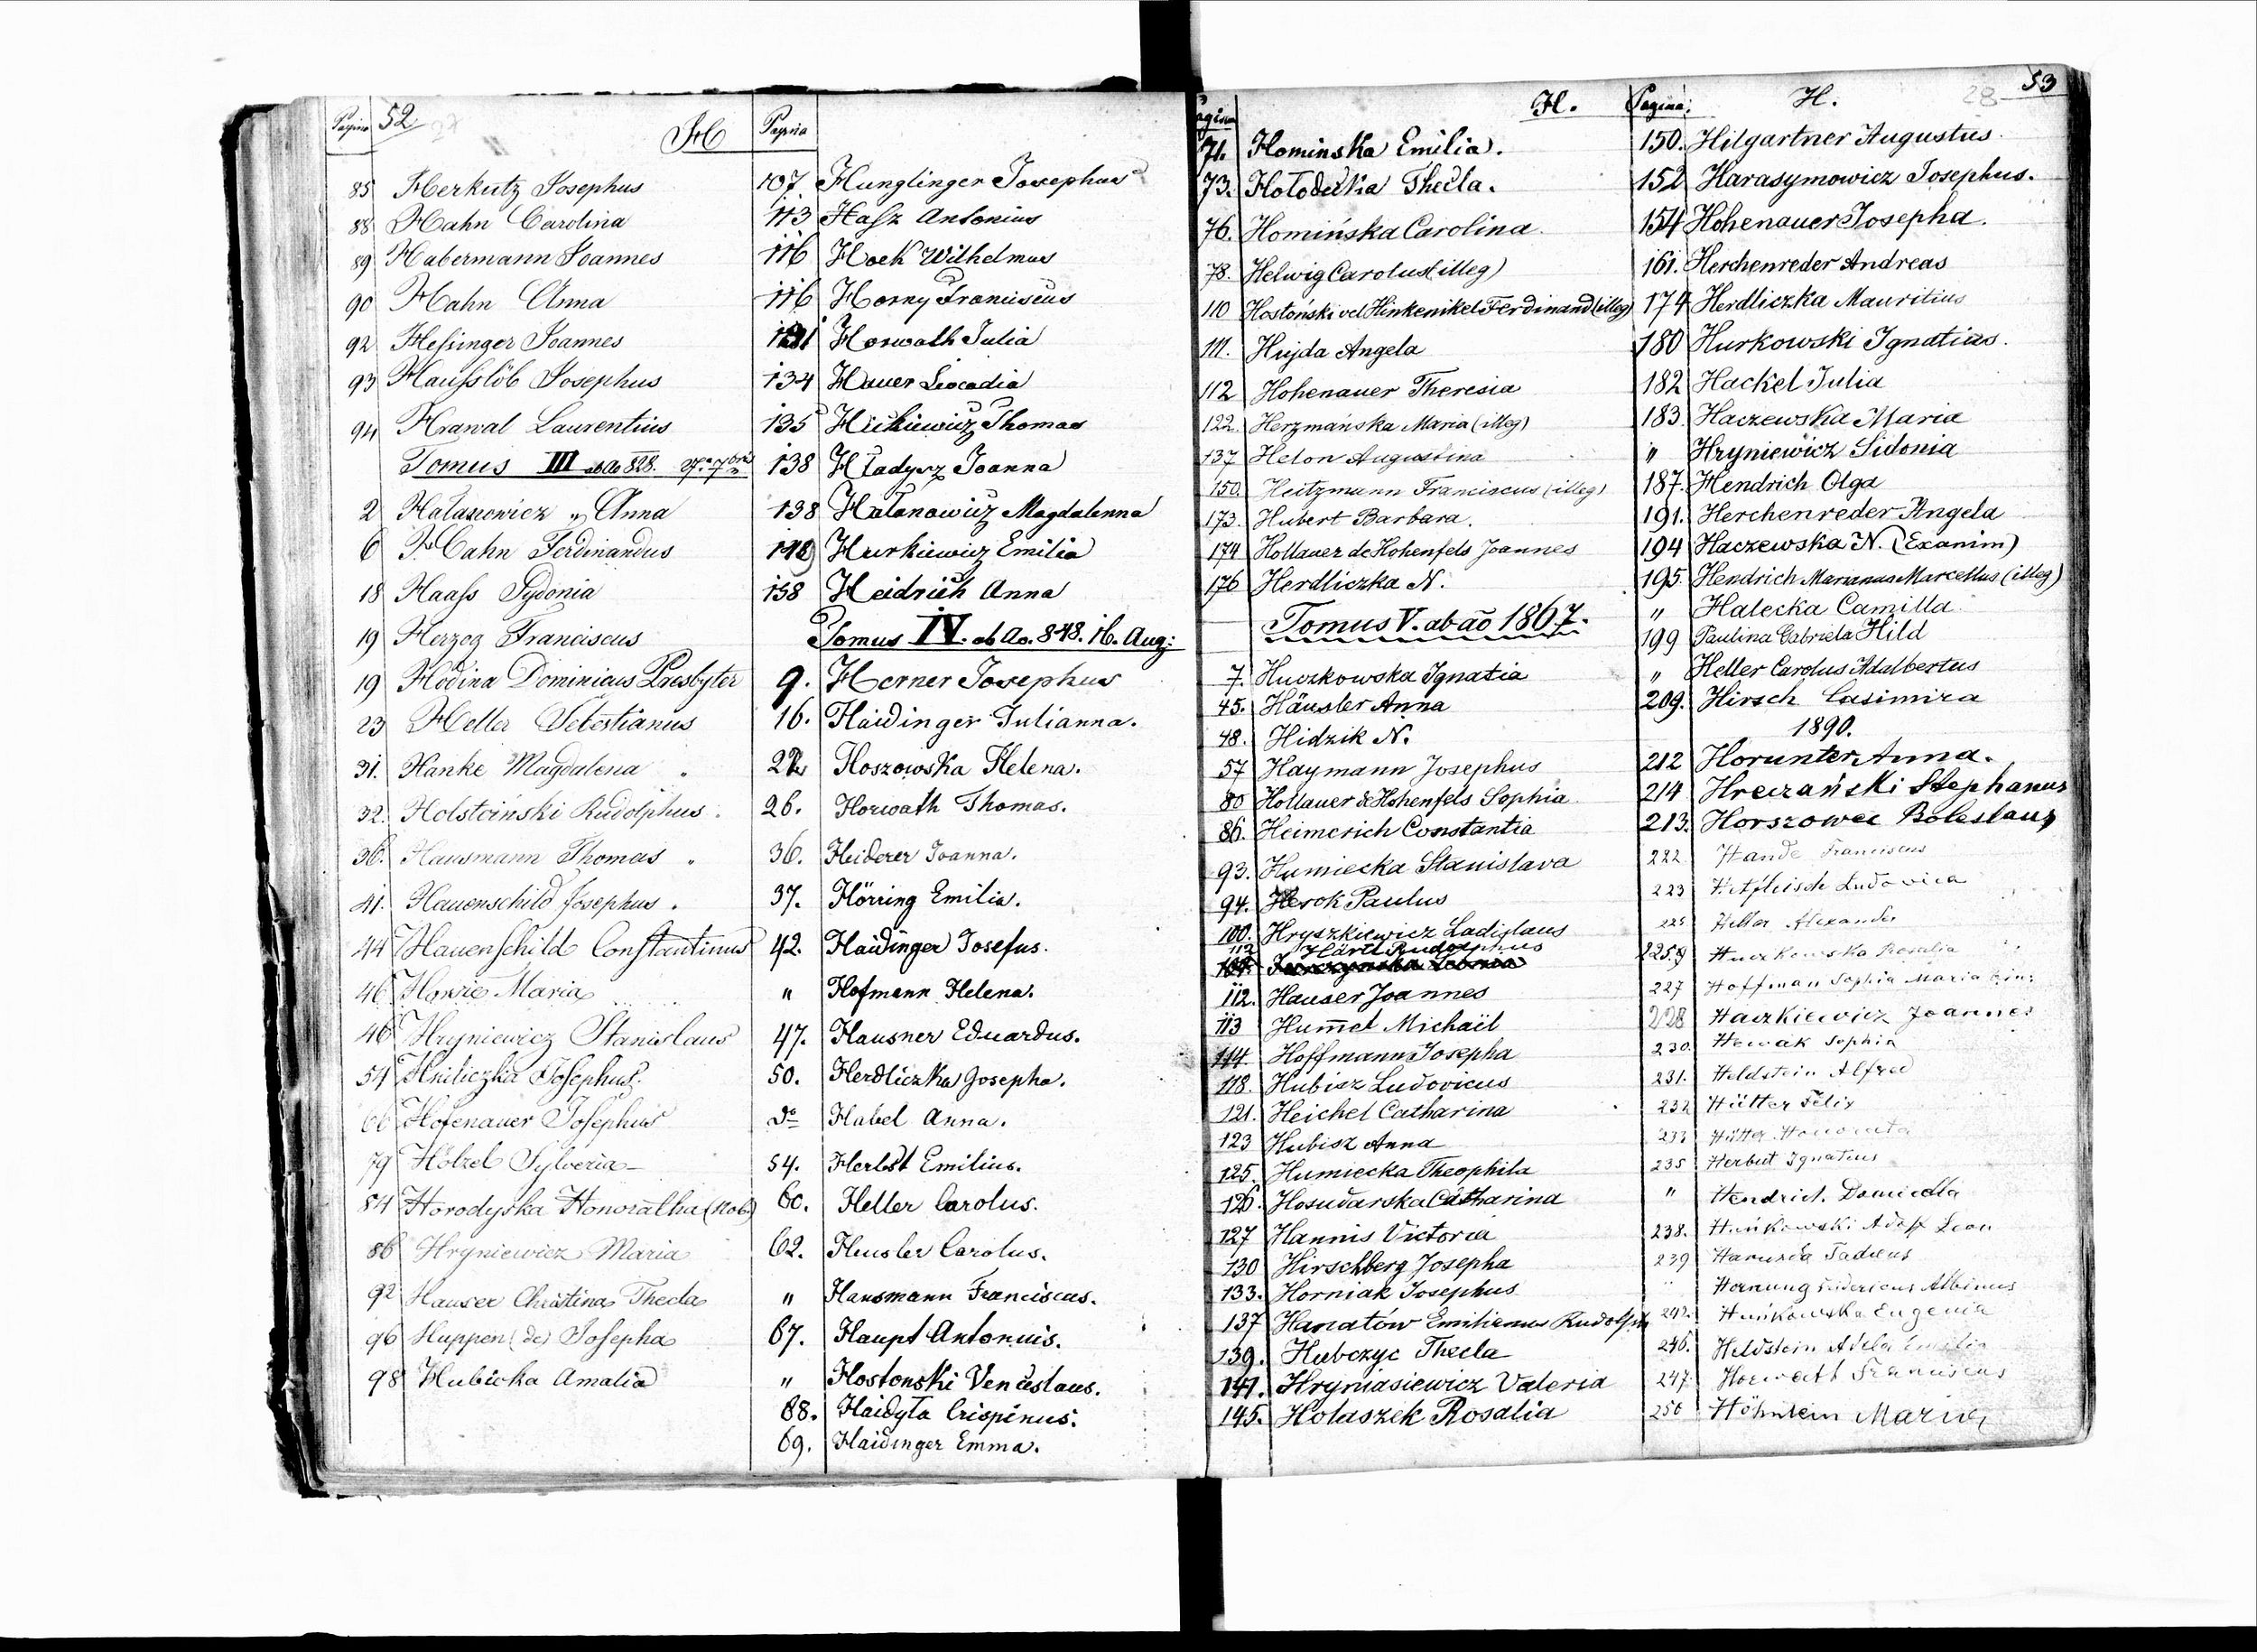 Pagina 52
H Pagina
85 Herkutz Josephus
88 Hahn Carolina
89 Habermann Joannes
90 Hahn Anna
92 Hessinger Joannes
93 Hausslöb Josephus
94 Hrawal Laurentius
Tomus III ab Ao 828.
2 Hałasiewicz Anna
6 Hahn Ferdinandus
18 Haass Sydonia
19 Herzog Franciscus
19 Hodina Dominicus Presbyter
23 Heller Sebestianus
31. Hanke Magdalena
32. Holstoiński Rudolphus.
36. Hausmann Thomas
41. Hauenschild Josephus.
44 Hauenschild Constantinus
46 Maria
46 Hryniewicz Stanislaus
54 Hniliczka Josephus.
66 Hofenauer Josephus
79 Hölzel Sylveria
84 Horodyska Honoratha (Nob)
86 Hryniewicz Maria
92 Hauser Christina Thecla
96 Huppen (de) Josepha
98 Hubicka Amalia
107 Hunglinger Josephus
113 Hasz Antonius
116 Hoek Wilhelmus
116 Horny Franciscus
Horwath Julia
134 Hauer Leocadia
135 Hickiewicz Thomas
138 Hładysz Joanna
138 Hałanowicz Magdalenna
Hurkiewicz Emilia
158 Heidrich Anna
Tomus IV. ab Ao. 848. 16. Aug:
9. Herner Josephus
16. Haidinger Julianna.
22 Hoszowska Helena.
26. Horwath Thomas.
36. Heiderer Joanna.
37. Hörring Emilia.
42. Haidinger Josefus.
" Hofmann Helena.
47. Hausner Eduardus.
50. Herdliczka Josepha.
do Habel Anna.
54. Herbst Emilius.
60. Heller Carolus.
62. Heusler Carolus.
" Hausmann Franciscus.
67. Haupt Antonius.
" Hostonski Venceslaus.
68. Haidyła Crispinus.
69. Haidinger Emma.
Pagina H.
71. Hominska Emilia.
73. Hołodecka Thecla.
76. Homińska Carolina.
78. Helwig Carolus (illeg)
110 Hostoński vel Hinkenikel Ferdinand (illeg)
111. Hujda Angela
112 Hohenauer Theresia
122. Herzmańska Maria (illeg)
137 Helon Augustina
150. Heitzmann Franciscus (illeg)
173. Hubert Barbara.
174 Hollauer de Hohenfels Joannes
176 Herdliczka N.
Tomus V. ab aō 1867.
7. Huczkowska Ignatia
45. Häusler Anna
48. Hidzik N.
57 Haymann Josephus
80 Hollauer de Hohenfels Sophia
86. Heimerich Constantia
93. Humiecka Stanislava
94. Herok Paulus
100. Hryszkiewicz Ladislaus
112 Härtl Rudolphus
112. Hauser Joannes
113 Hum̄el Michaël
114. Hoffmann Josepha
118. Hubisz Ludovicus
121. Heichel Catharina
123 Hubisz Anna
125. Humiecka Theophila
126. Hosudarska Catharina
127 Hannis Victoria
130 Hirschberg Josepha
133. Horniak Josephus
137 Hanatów Emilianus Rudolph
139. Hubczyc Thecla
141. Hryniasiewicz Valeria
145. Holaszek Rosalia
Pagina. H. 28 53
150. Hilgartner Augustus
152 Harasymowicz Josephus.
154 Hohenauer Josepha.
161. Herchenreder Andreas
174 Herdliczka Mauritius
180 Hurkowski Ignatius.
182 Hackel Julia
183. Haczewska Maria
" Hryniewicz Sidonia
187. Hendrich Olga
191. Herchenreder Angela
194 Haczewska N. (Exanim)
195. Hendrich Marianus Marcellus (illeg)
" Halecka Camilla
199 Paulina Gabriela Hild
" Heller Carolus Adalbertus
209. Hirsch Casimira
1890.
212 Horunter Anna.
214 Hreczański Stephanus
213. Horszowec Boleslaus
222 Hande Franciscus
223 Ludovica
225 Heller Alexander
Huczkowska Rosalia
227 Hoffman Sophia Maria
228 Haczkiewicz Joannes
230. Sophia
231. Heldstein Alfred
232 Hütter Felix
233 Hütter Honorata
235 Herbut Ignatius
" Hendrich Domicella
238. Hańkowski Adolf Leon
239 Tadeus
" Hornung Fridericus Albinus
242. Hańkowska Eugenia
246. Heldstein Adela Emilia
247. Horwath Franciscus
250 Maria